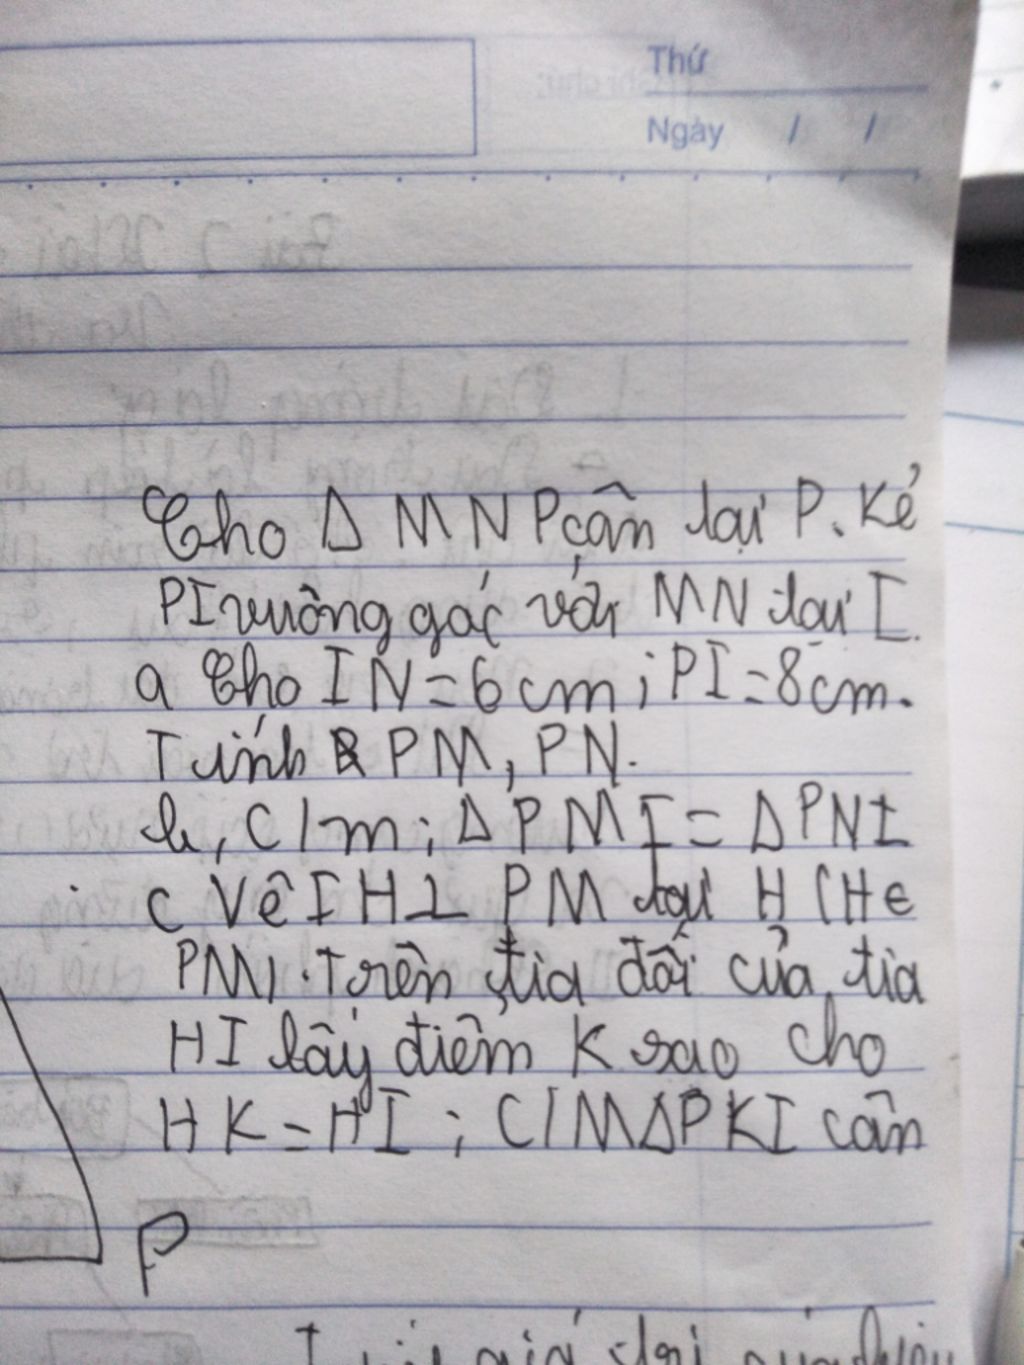 Thứ
Ngày / /
Cho Δ MNP cân tại P. Kẻ
PI vuông góc với MN tại I.
a Cho IN=6cm; PI=8cm.
Tính PM, PN.
b, C/m; Δ PMI = Δ PNI
c Vẽ IH⊥ PM tại H (H∈
PM). Trên tia đối của tia
HI lấy điểm K sao cho
HK=HI; C/M ΔPKI cân
P